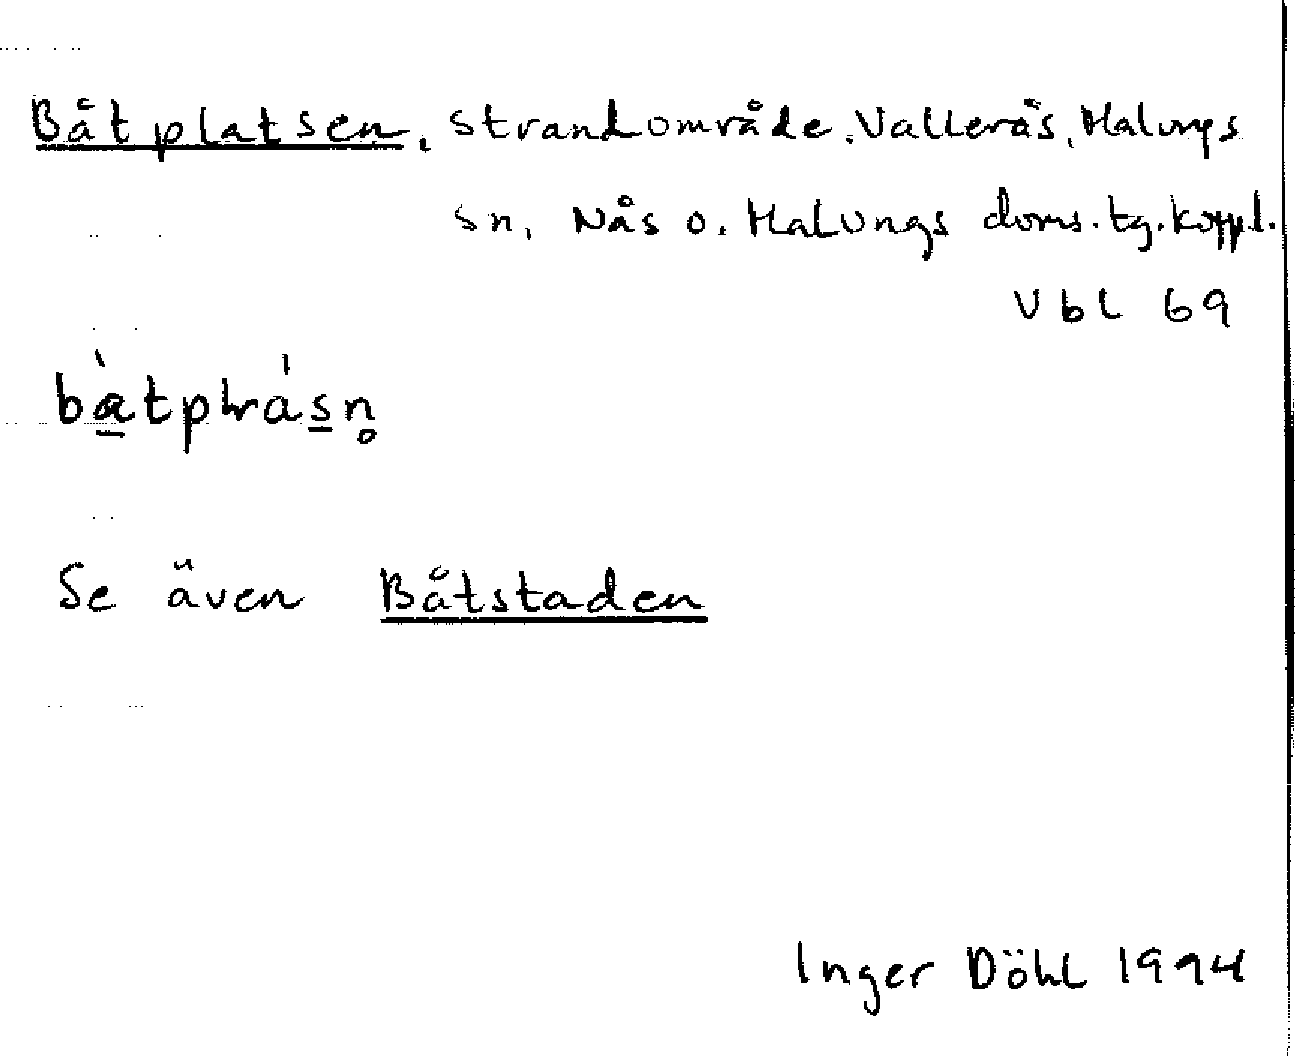 Båtplatsen, strandområde. Vallerås, Malungs
sn, Nås o. Malungs doms. tg. Koppl.
Vbl 69
Se även Båtstaden
Inger Döhl 1994